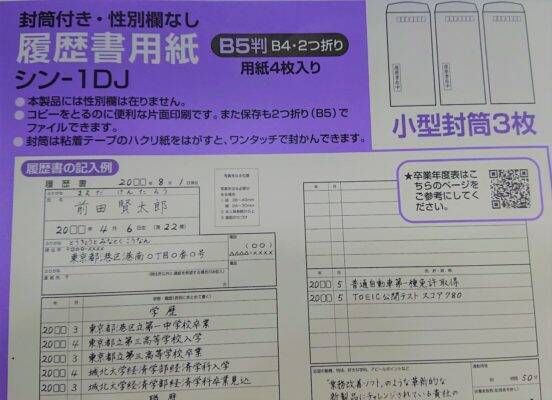 封筒付き・性別欄なし
履歴書用紙
B5判 B4・2つ折り
用紙4枚入り
シン-1DJ
●本製品には性別欄は在りません。
●コピーをとるのに便利な片面印刷です。また保存も2つ折り（B5）で
ファイルできます。
●封筒は粘着テープのハクリ紙をはがすと、ワンタッチで封かんできます。
小型封筒3枚
履歴書の記入例
★卒業年度表はこ
ちらのページを
ご参考にしてく
ださい。
履歴書 20□□年8月1日現在
ふりがな まえだ けんたろう
氏名
前田賢太郎
20□□年4月6日生（満22歳）
ふりがな とうきょうと みなとく こうなん
東京都港区港南〇丁目〇番〇号
電話
年 月
学歴
20□□ 3 東京都港区立第一中学校卒業
20□□ 4 東京都立第三高等学校入学
20□□ 3 東京都立第三高等学校卒業
20□□ 4 城北大学経済学部経済学科入学
20□□ 3 城北大学経済学部経済学科卒業見込
職歴
年 月 免許・資格
20□□ 5 普通自動車第一種免許取得
20□□ 5 TOEIC公開テスト スコア780
通勤時間
約 時間 50分
「業務改善ソフト」のような革新的な
新製品にチャレンジされている貴社の